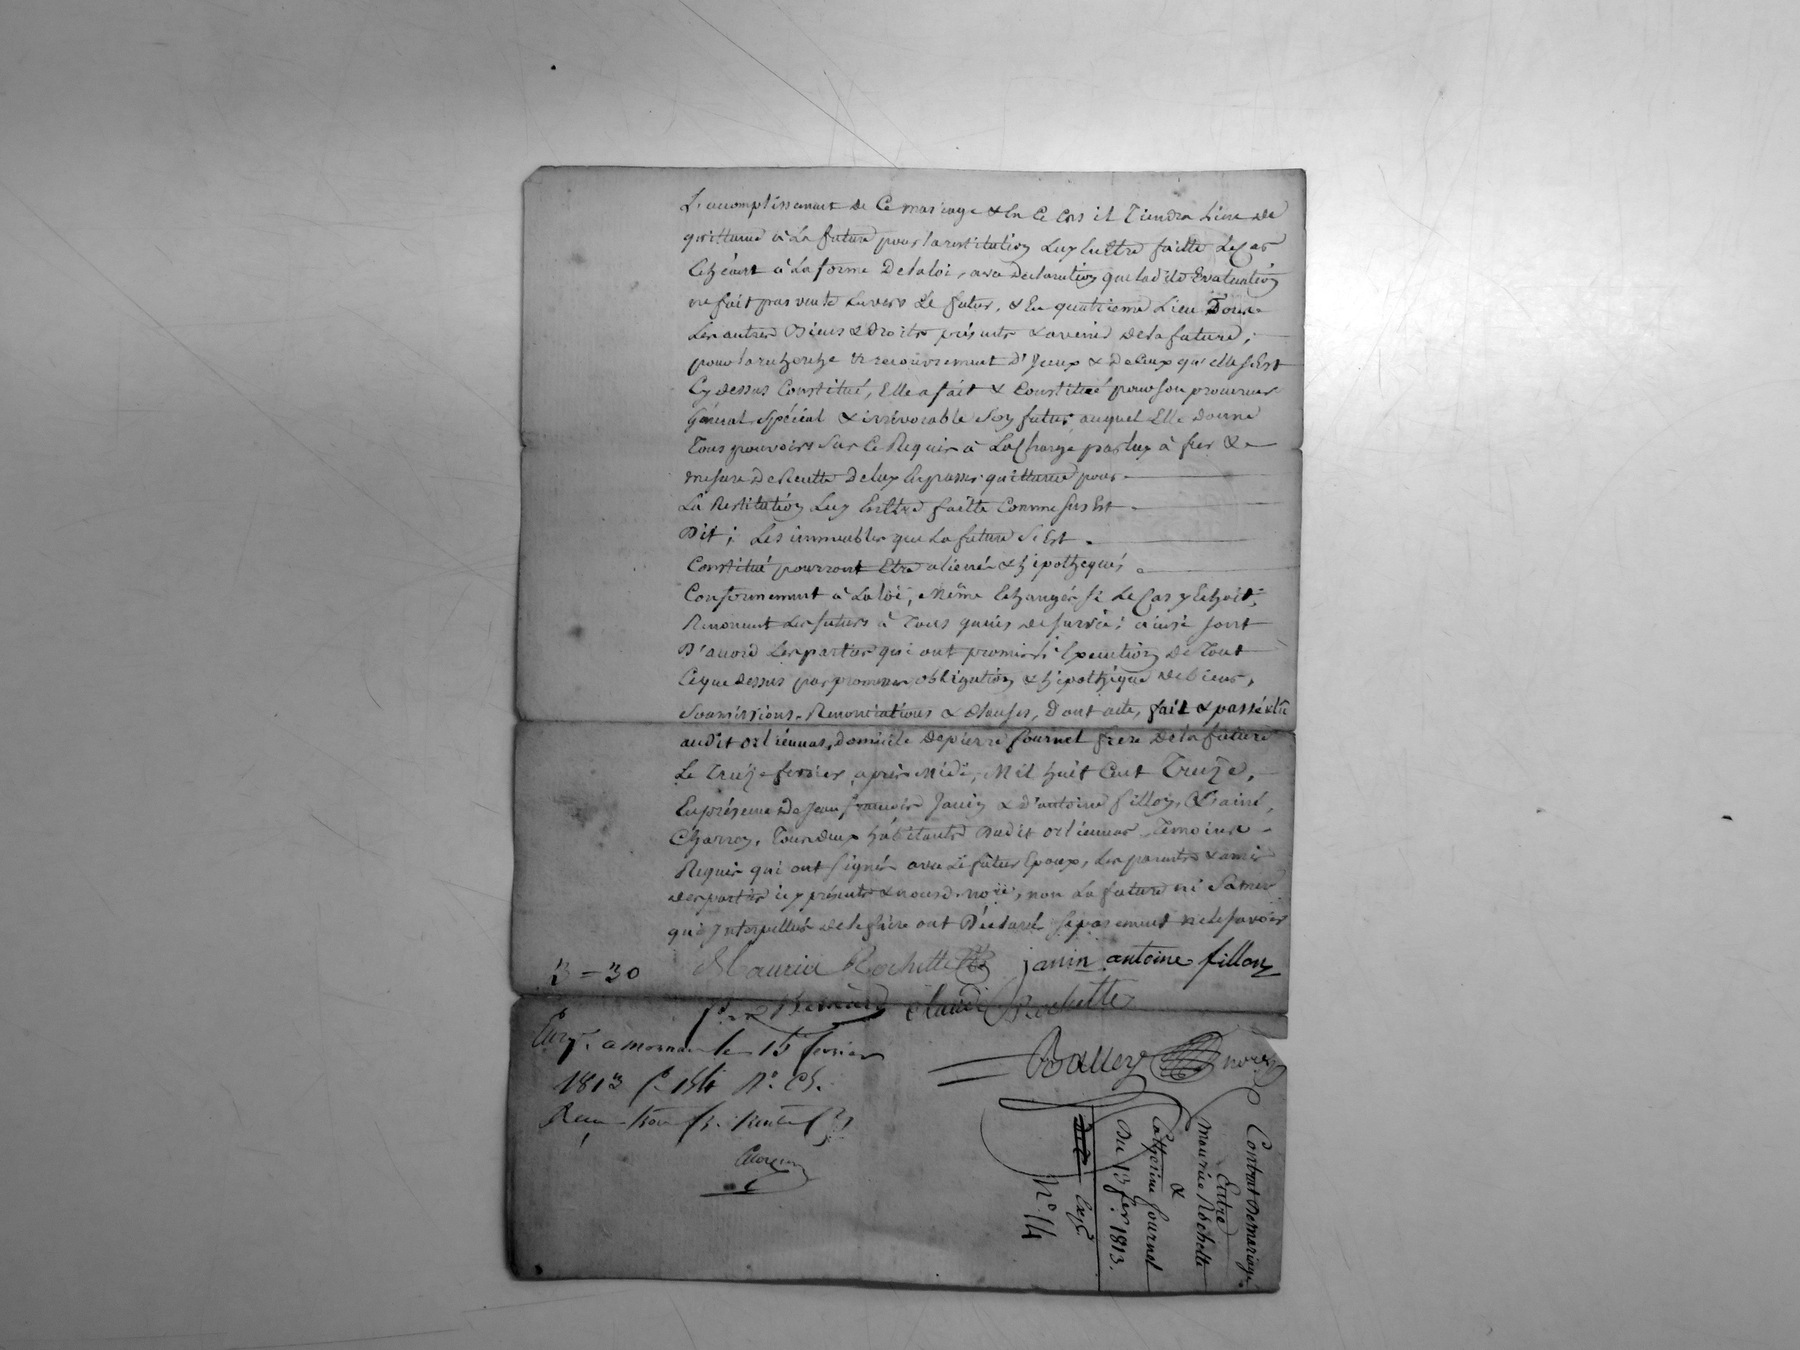 L'accomplissement de Ce mariage & En Ce Cas il Tiendra Lieu de
quittance à La future pour la restitution Luy En Etre faitte Le Cas
Echéant à La forme De la loi, avec Declaration que lad.te Evaluation
ne fait pas vente Envers Le futur, & En quatrieme Lieu Tous
Les autres Biens & Droits présents & avenir de la future;
pour la recherche & recouvrement D'Yceux & De Ceux qu'elle s'Est
Cy dessus Constitué, Elle a fait & Constitué pour son procureur
Général Spécial & irrévocable Son futur, auquel Elle Donne
Tous pouvoirs Sur Ce Requis à La Charge par luy à fur & a
mesure De Recette De luy En passer quittance pour
La Restitution Luy En Etre faitte Comme sus Est
Dit; Les immeubles que La future S'Est
Constitué pourront Etre aliéné & hipothequés
Conformement à La loi, Même Echangés si Le Cas y Echoit;
Renoncent Les futurs à Tous gains de survie; ainsi sont
D'accord Les parties qui ont promis L'Execution De Tout
Ce que dessus par promesses, obligation & hipothèque de Biens,
Soumissions, Renonciations & Clauses, Dont acte, fait & passé & lû
audit orliennas, domicile de pierre fournel frere de la future
Le Treize fevrier après Midi, Mil huit Cent Treize,
En présence De Jean françois Janin & d'antoine fillon,
Charron, Tous deux habitants Dudit orliennas Temoins
Requis qui ont signés avec Le futur Epoux, Les parents & amis
des parties icy présents & nous d. no.re, non La future ni Sa mere
qui Interpellées de le faire ont Déclaré Séparement ne le savoir
3 = 30
Mauria Rochette janin antoine fillon
Bernard claude Rochette
Enr. a mornan le 15 fevrier
Balley no.re
1813 f.o 154 R.o C. 5.
Recu trois fr. trente
Contrat de mariage
Entre
Maurice Rochette
&
Catherine fournel
Du 13 fev. 1813.
Exp.é
N.o 14